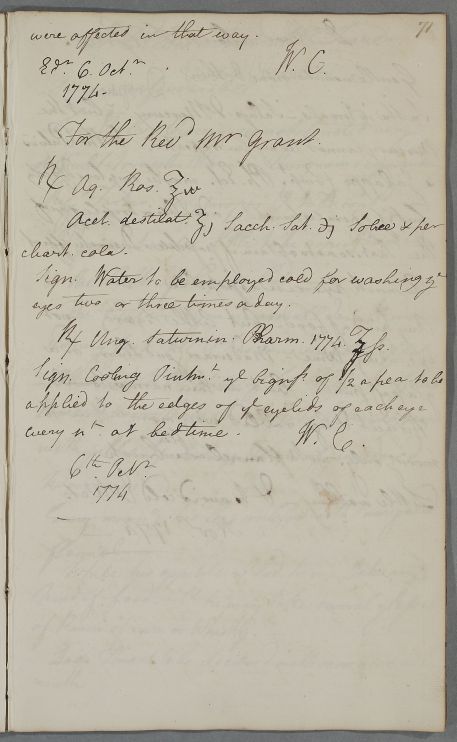 71
were affected in that way.
Edr. 6. Octr.
W. C.
1774.
For the Revd. Mr Grant.
℞ Aq. Ros. ℥iv
Acet. destillat. ℥j Sacch. Sat. ℈j Solve & per
chart. cola.
Sign. Water to be employed cold for washing ye
eyes two or three times a day.
℞ Ung. Saturnin. Pharm. 1774. ℥ſs.
Sign. Cooling Ointmt. ye bigness of 1/2 a pea to be
applied to the edges of ye eyelids of each eye
every nt. at bedtime.
W. C.
6th Octr.
1774